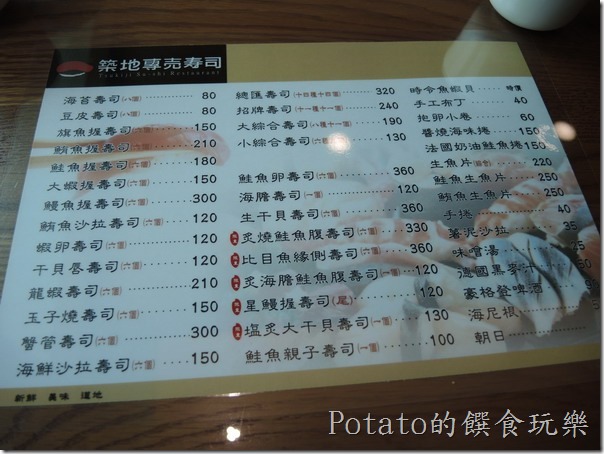 築地專売寿司
Tsukiji Su-shi Restaurant
海苔壽司(八個) 80
豆皮壽司(八個) 80
旗魚握壽司(六個) 150
鮪魚握壽司(六個) 210
鮭魚握壽司(六個) 180
大蝦握壽司(六個) 150
鰻魚握壽司(六個) 300
鮪魚沙拉壽司(六個) 120
蝦卵壽司(六個) 120
干貝唇壽司(六個) 120
龍蝦壽司(六個) 210
玉子燒壽司(六個) 150
蟹管壽司(六個) 300
海鮮沙拉壽司(六個) 150
新鮮 美味 道地
總匯壽司(十四種十四個) 320
招牌壽司(十一種十一個) 240
大綜合壽司(八種十一個) 190
小綜合壽司 130
鮭魚卵壽司(六個) 360
海膽壽司(一個) 120
生干貝壽司(六個) 360
炙燒鮭魚腹壽司(六個) 330
比目魚緣側壽司(六個) 360
炙海膽鮭魚腹壽司(一個) 120
星鰻握壽司(尾) 120
塩炙大干貝壽司(一個) 130
鮭魚親子壽司(一個) 100
時令魚蝦貝 時價
手工布丁 40
抱卵小卷 60
醬燒海味捲 150
法國奶油鮭魚捲 150
生魚片(綜合) 220
鮭魚生魚片 250
鮪魚生魚片 250
手捲 40
薯泥沙拉 35
味噌湯 25
德國黑麥汁
豪格登啤酒 90
海尼根
朝日
Potato的饌食玩樂